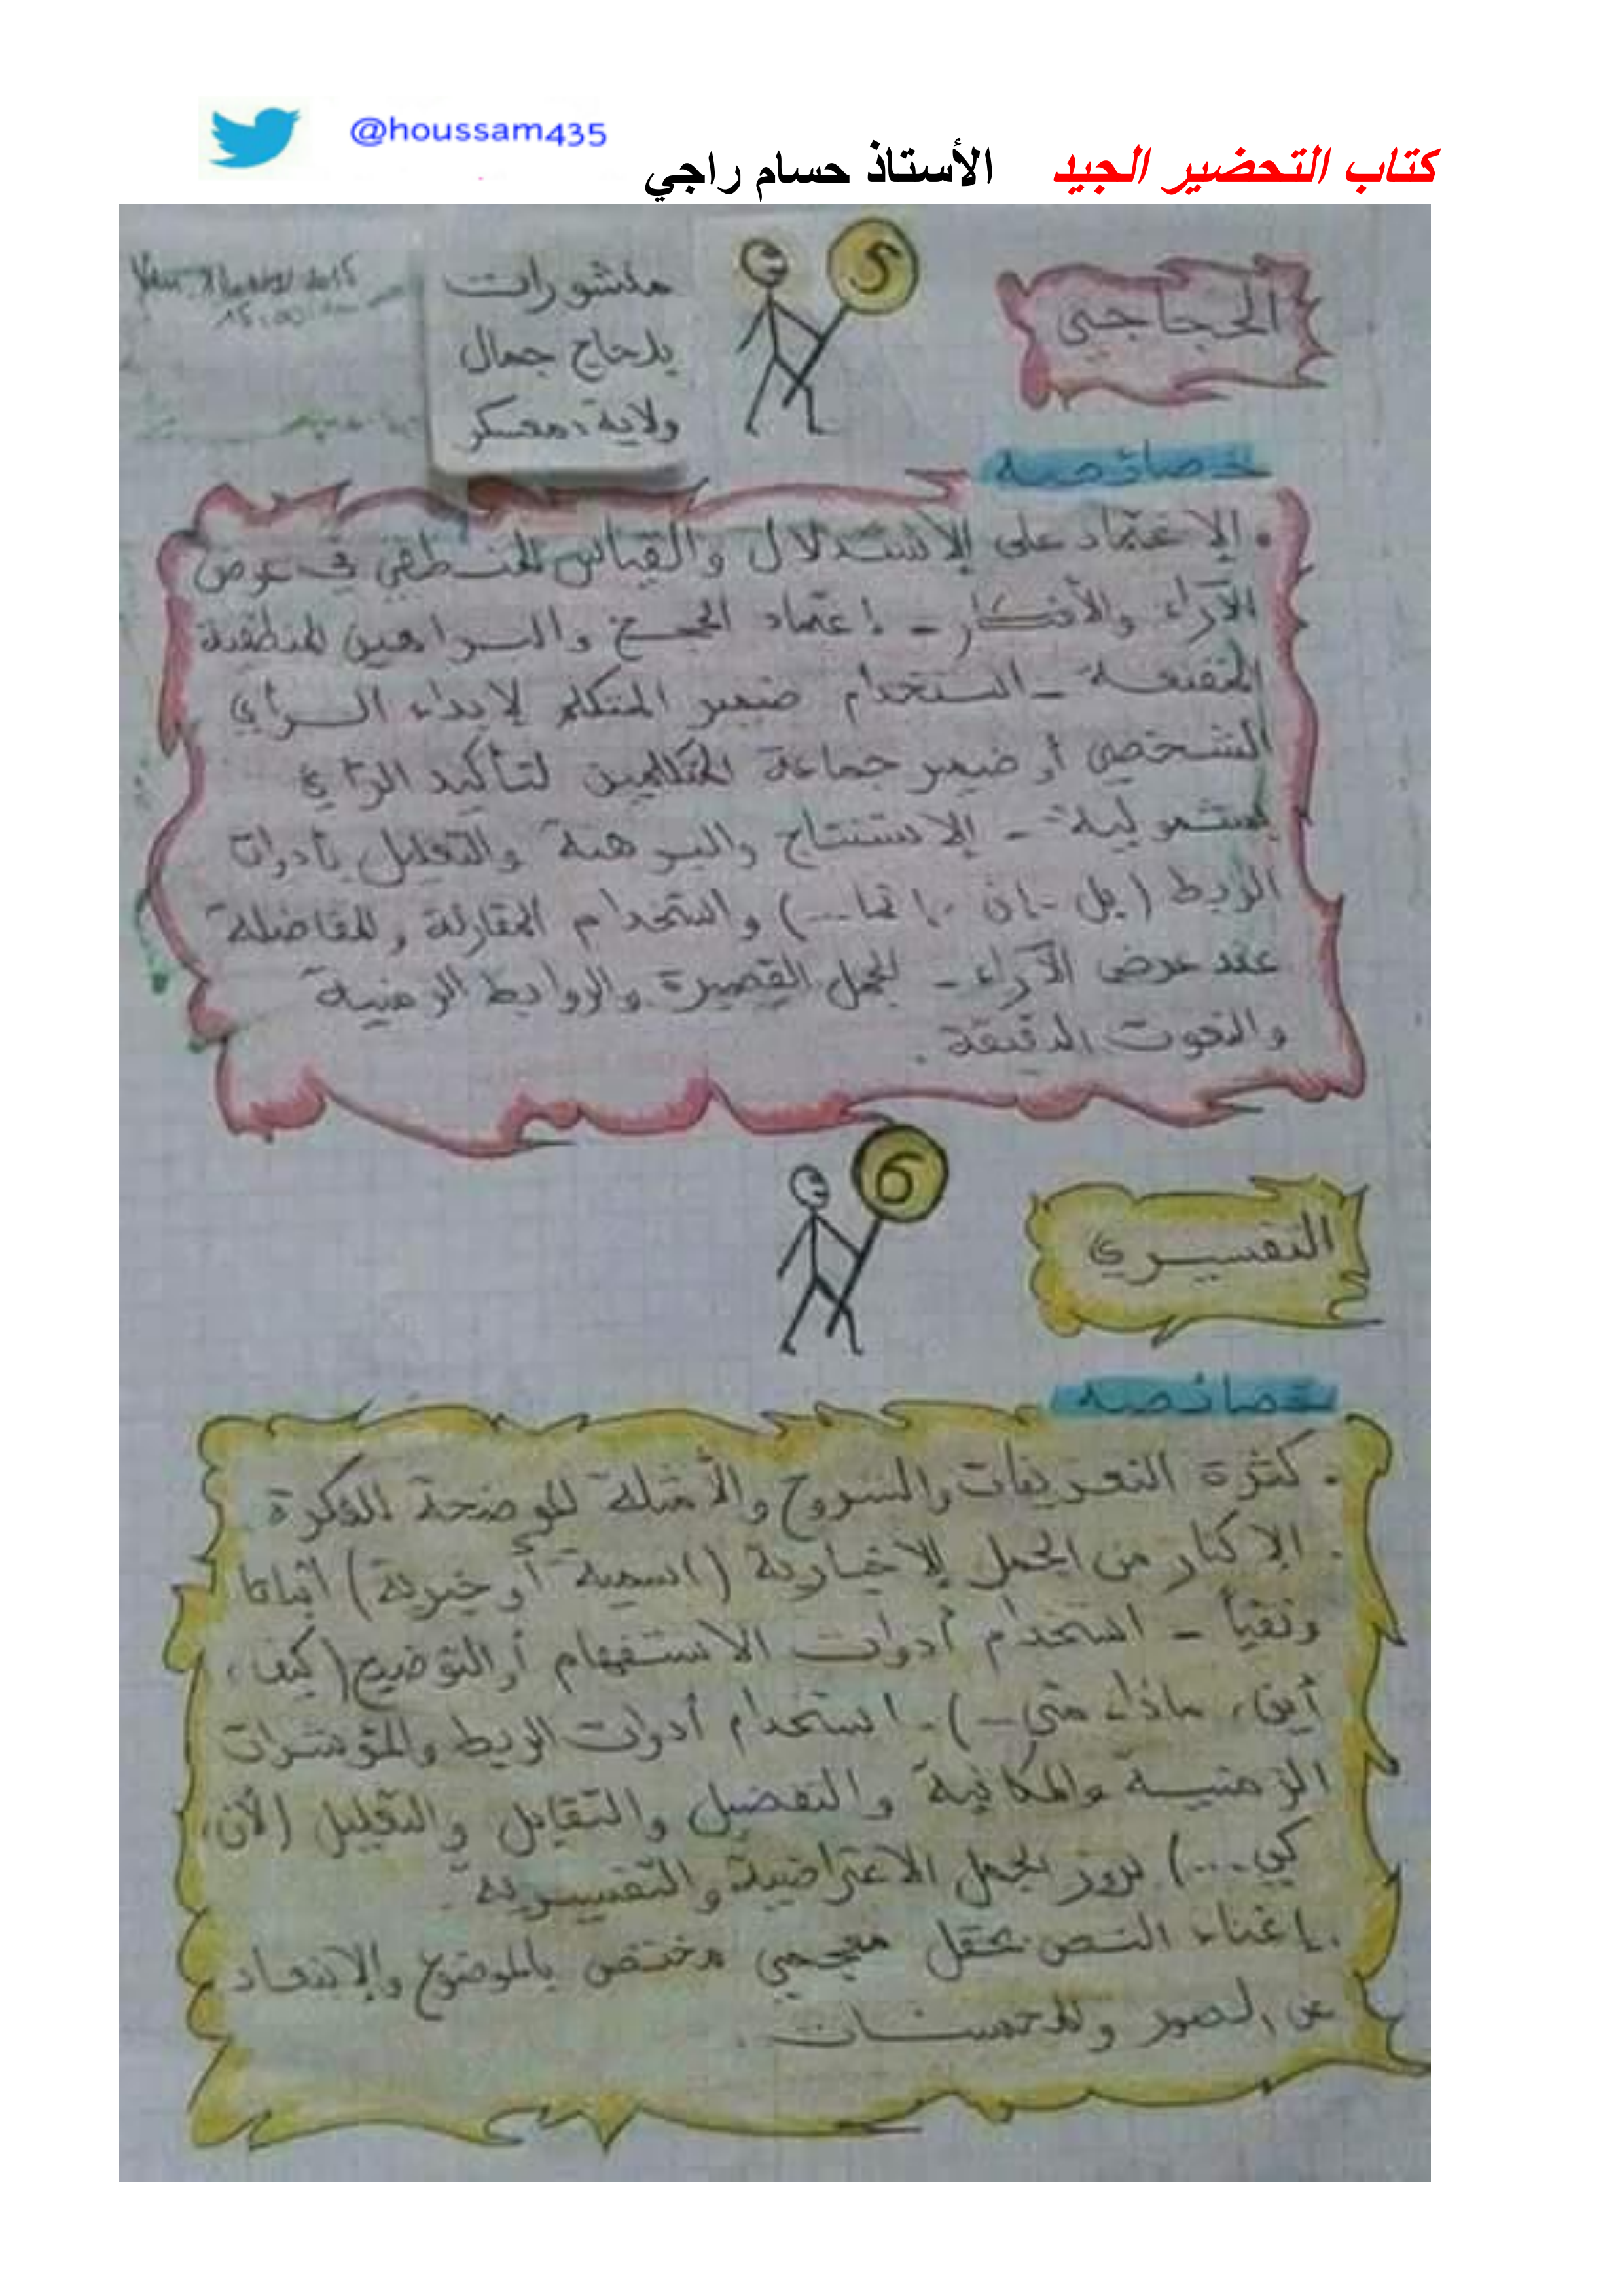 @houssam435
كتاب التحضير الجيد الأستاذ حسام راجي
منشورات
بلحاج جمال
ولاية: معسكر
5
الحجاجي
خصائصه
• الاعتماد على الاستدلال والقياس المنطقي في عرض
الآراء والأفكار - اعتماد الحجج والبراهين المنطقية
المقنعة - استخدام ضمير المتكلم لإبداء الرأي
الشخصي أو ضمير جماعة المتكلمين لتأكيد الرأي
- الاستنتاج والبرهنة والتعليل بأدوات
الربط (بل - إن - إنما...) واستخدام المقارنة والمفاضلة
عند عرض الآراء - الجمل القصيرة والروابط الزمنية
والنعوت الدقيقة.
6
التفسيري
خصائصه
• كثرة التعريفات والشروح والأمثلة الموضحة للفكرة
• الإكثار من الجمل الإخبارية (اسمية أو خبرية) اثباتا
ونفياً - استخدام أدوات الاستفهام أو التوضيح (كيف،
أين، ماذا، متى...) - استخدام أدوات الربط والمؤشرات
الزمنية والمكانية والتفضيل والتقابل والتعليل (لأن،
كي...) بروز الجمل الاعتراضية والتفسيرية.
• إغناء النص بحقل معجمي مختص بالموضوع والابتعاد
عن الصور والمحسنات.